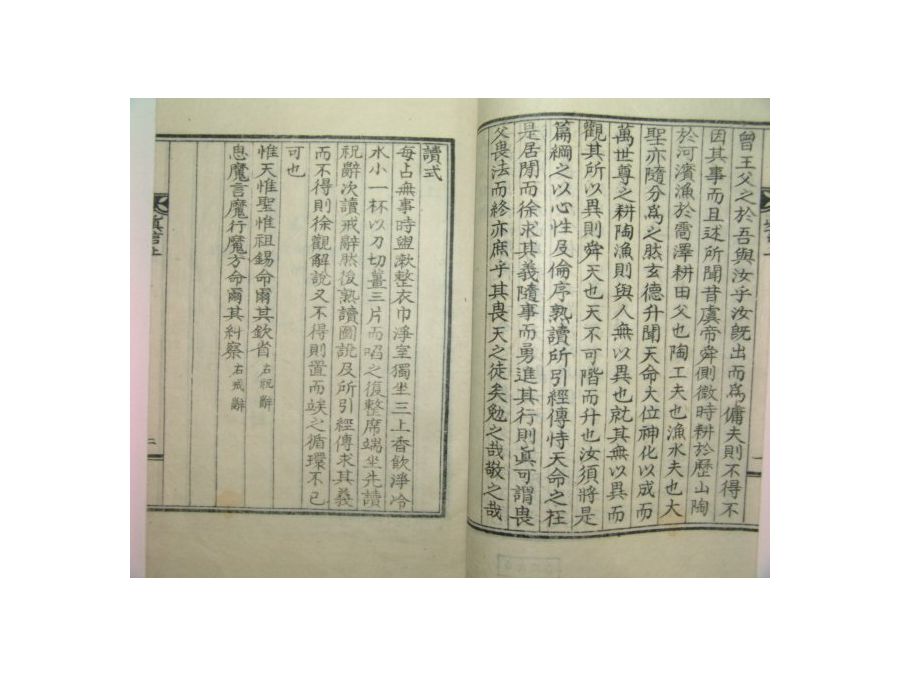 曾王父之於吾與汝乎汝旣出而爲傭夫則不得不
因其事而且述所聞昔虞帝舜側微時耕於歷山陶
於河濱漁於雷澤耕田父也陶工夫也漁水夫也大
聖亦隨分爲之然玄德升聞天命大位神化以成而
萬世尊之耕陶漁則與人無以異也就其無以異而
觀其所以異則舜天也天不可階而升也汝須將是
篇綱之以心性及倫序熟讀所引經傳恃天命之在
是居閒而徐求其義隨事而勇進其行則眞可謂畏
父畏法而終亦庶乎其畏天之徒矣勉之哉敬之哉
讀式
每占無事時盥漱整衣巾淨室獨坐三上香飮淨冷
水小一杯以刀切薑三片而啗之復整席端坐先讀
祝辭次讀戒辭然後熟讀圖說及所引經傳求其義
而不得則徐觀解說又不得則置而竢之循環不已
可也
惟天惟聖惟祖錫命爾其欽省 右祝辭
息魔言魔行魔方命爾其糾察 右戒辭
二